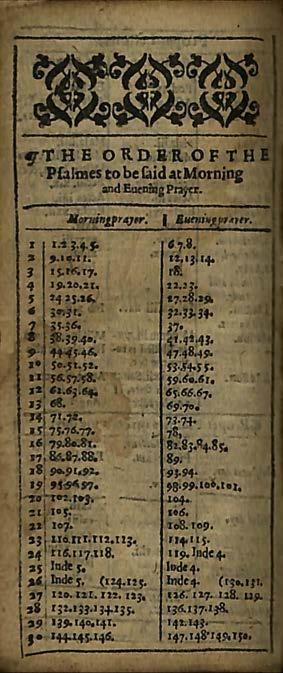 ¶ THE ORDER OF THE
Psalmes to be said at Morning
and Euening Prayer.
Morning prayer. ‖ Euening prayer.
1 1.2.3.4.5. 6.7.8.
2 9.10.11. 12.13.14.
3 15.16.17. 18.
4 19.20.21. 22.23.
5 24 25.26. 27.28.29.
6 30.31. 32.33.34.
7 35.36. 37.
8 38.39.40. 41.42.43.
9 44.45.46. 47.48.49.
10 50.51.52. 53.54.55.
11 56.57.58. 59.60.61.
12 62.63.64. 65.66.67.
13 68. 69.70.
14 71.72. 73.74.
15 75.76.77. 78.
16 79.80.81. 82.83.84.85.
17 86.87.88. 89.
18 90.91.92. 93.94.
19 95.96.97. 98.99.100.101.
20 102.103. 104.
21 105. 106.
22 107. 108.109.
23 110.111.112.113. 114.115.
24 116.117.118. 119. Inde 4.
25 Inde 5. Inde 4.
26 Inde 5. (124.125. Inde 4. (130.131.
27 120.121.122.123. 126.127.128.129.
28 132.133.134.135. 136.137.138.
29 139.140.141. 142.143.
30 144.145.146. 147.148.149.150.